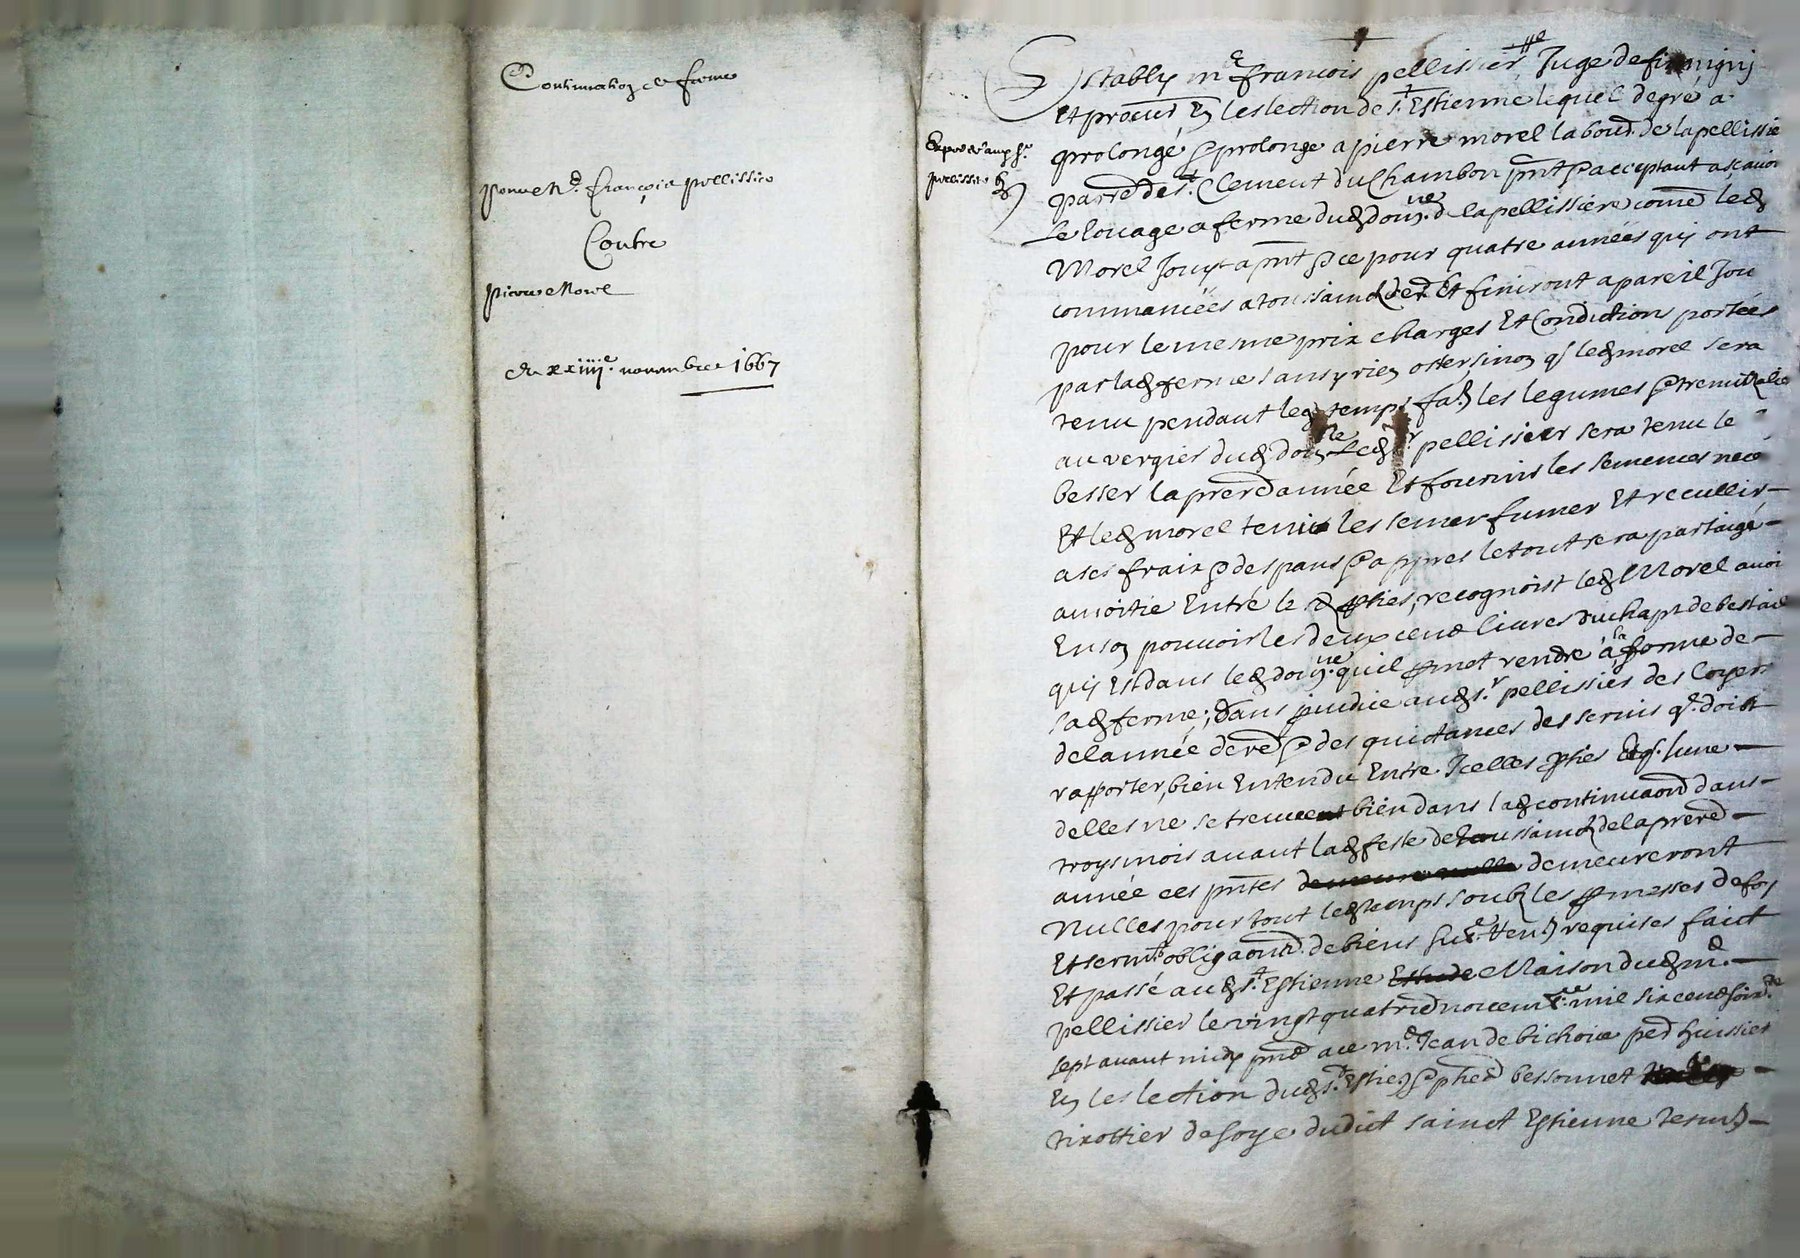 Continuation de ferme
pour Me. françois pellissier
Contre
pierre Morel
du xxiiiie. novembre 1667
Estably me francois pellissier Juge de firmigni
Et procur En leslection de st Estienne lequel de gré a
prolongé & prolonge a pierre morel labour. de la pellissie
parre de st. Clement du Chambon pnt & acceptant ascavoir
Le louage a ferme dud domne. de la pellissiere come led
Morel Jouyt a pnt & ce pour quatre années quj ont
commancées a toussainctz der. Et finiront a pareil Jou
pour le mesme prix charges Et Condiction portées
par lad ferme sans y rien oster sinon q led morel sera
tenu pendant led temps les legumes & tremailles
au vergier dud dom Led sr pellissier sera tenu le
besser la pre année Et fournir les semences nece
Et led morel tenu les semer fumer Et recullir
a ses fraix & despans & appres le tout sera partaigé
a moitie Entre les pties, recognoist led Morel avoir
En son pouvoir les deux cend livres du chapt de bestail
quj Est dans led domne. quil pmet rendre a la forme de
sad ferme; sans pjudice aud sr. pellissier des loyers
de lannée der & des quictances des servis q. doibt
rapporter, bien Entendu Entre Icelles pties q. lune
delles ne se treuvent bien dans lad continuaon dans
troys mois avant lad feste de toussainctz de la pre
année ces pntes demeureront
Nulles pour tout led temps soubz les pmesses de foy
Et serm. obligaon de biens requises faict
Et passé aud st. Estienne Maison dud me.
pellissier le vingt quatre novembre mil six cend soixte
sept avant midy pnt me. Jean de bichoie huissier
En leslection dud st. Estie & bessonnet
tixottier de soye dudict sainct Estienne tesm